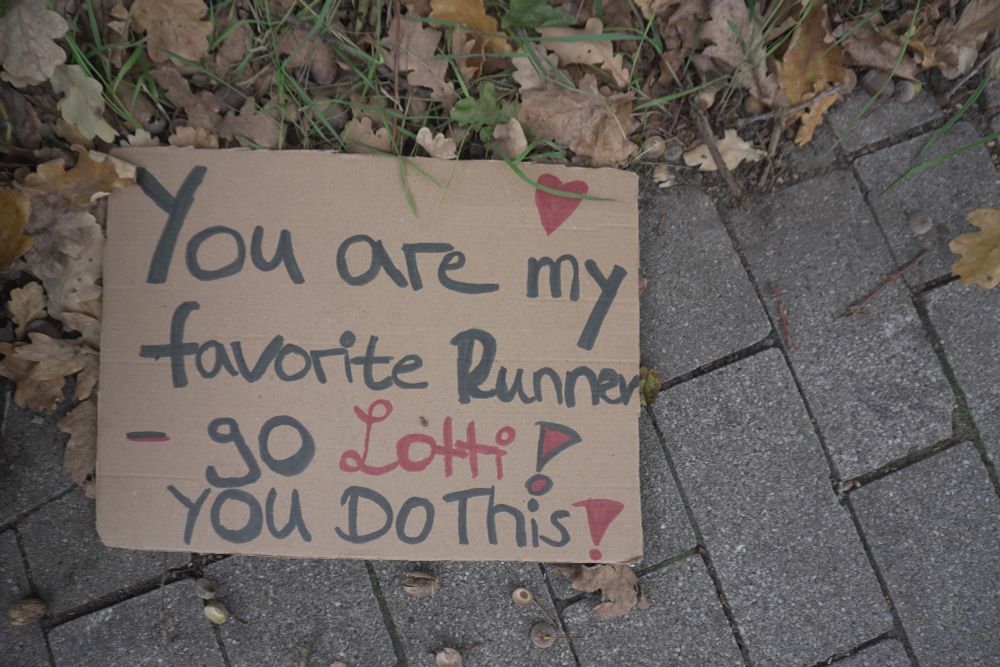 You are my
favorite Runner
- go Lotti!
YOU Do This!